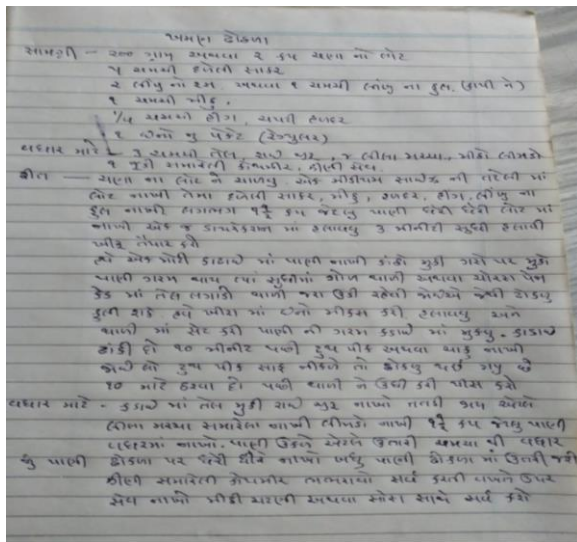 ખમણ ઢોકળા
સામગ્રી — ૨૦૦ ગ્રામ અથવા ૨ કપ ચણા નો લોટ
૫ ચમચી દળેલી સાકર
૨ લીંબુ નો રસ અથવા ૧ ચમચી લીંબુ ના ફુલ
૧ ચમચી મીઠું,
૧/૪ ચમચી હીંગ, ચપટી હળદર
૧ ઈનો નુ પેકેટ (રેગ્યુલર)
વઘાર માટે — ૩ ચમચી તેલ, રાઈ જીરુ, ૪ લીલા મરચા, મીઠો લીમડો
૧ જુડી સમારેલી કોથમીર, ઝીણી સેવ.
રીત — ચણા ના લોટ ને ચાળવુ. એક મીડીયમ સાઈઝ ની તપેલી માં
લોટ નાખી તેમા દળેલી સાકર, મીઠુ, હળદર, હીંગ, લીંબુ ના
ફુલ નાખી લગભગ ૧ ૧/૨ કપ જેટલુ પાણી લોટ માં
નાખી એક જ ડાયરેકશન માં હલાવવુ ૩ મીનીટ સુધી હલાવી
ખીરુ તૈયાર કરો
હવે એક મોટી કઢાઈ માં પાણી નાખી કાંઠો મુકી ગેસ પર મુકો
પાણી ગરમ થાય ત્યાં સુધીમાં ગોળ થાળી અથવા ચોરસ પેન
કેક માં તેલ લગાડી થાળી જરા ઉંડી હોવી જોઈએ જેથી ઢોકળુ
ફુલી શકે. હવે ખીરા માં ઈનો મીક્સ કરી, હલાવવુ અને
થાળી માં સેટ કરી પાણી ની ગરમ કઢાઈ માં મુકવુ. કઢાઈ
ઢાંકી દો ૧૦ મીનીટ પછી ટુથ પીક અથવા ચાકુ નાખી
જોઈ લો ટુથ પીક સાફ નીકળે તો ઢોકળુ થઈ ગયુ છે
૧૦ માટે ઠરવા દો પછી થાળી ને ઉંધી કરી પીસ કરો
વઘાર માટે - કઢાઈ માં તેલ મુકી રાઈ જીરુ નાખો તતડી જાય એટલે
લીલા મરચા સમારેલા નાખી લીમડો નાખી ૧ ૧/૨ કપ જેટલુ પાણી
વઘારમાં નાખો. પાણી ઉકળે એટલે ઉતારી ચમચા થી વઘાર
નું પાણી ઢોકળા પર ધીરે ધીરે નાખો બધુ પાણી ઢોકળા માં ઉતરી જશે
ઝીણી સમારેલી કોથમીર ભભરાવો સર્વ કરતી વખતે ઉપર
સેવ નાખો મીઠી ચટણી અથવા સોસ સાથે સર્વ કરો